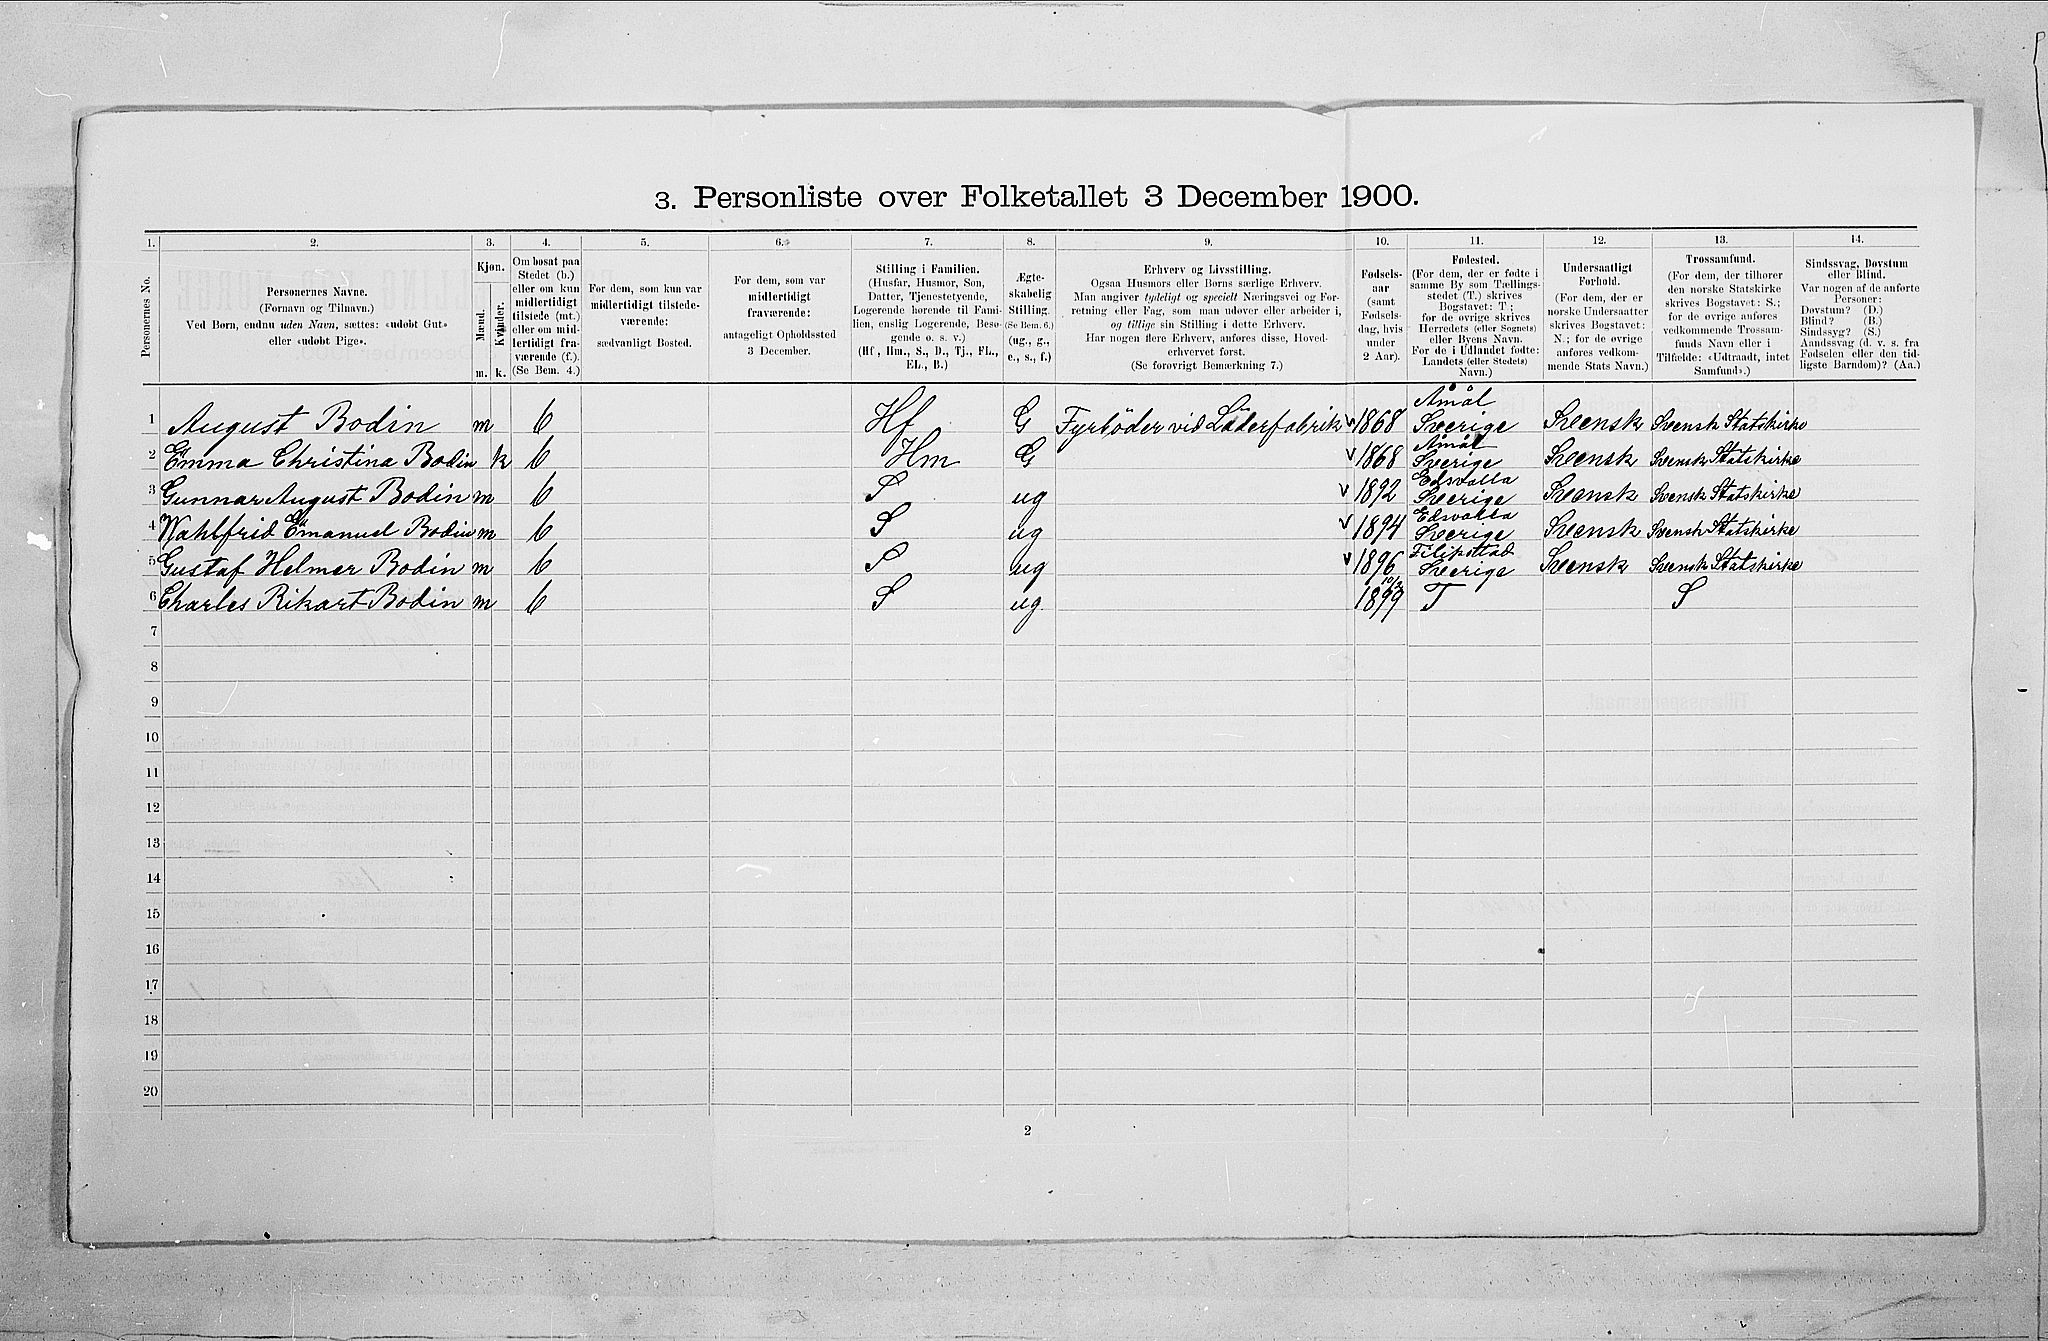 3. Personliste over Folketallet 3 December 1900.
1. 2. 3. 4. 5. 6. 7. 8. 9. 10. 11. 12. 13. 14.
Personernes No.
Personernes Navne.
(Fornavn og Tilnavn.)
Ved Børn, endnu uden Navn, sættes: «udøbt Gut»
eller «udøbt Pige».
Kjøn.
Mænd.
Kvinder.
m. k.
Om bosat paa
Stedet (b.)
eller om kun
midlertidigt
tilstede (mt.)
eller om mid-
lertidigt fra-
værende (f.).
(Se Bem. 4.)
For dem, som kun var
midlertidigt tilstede-
værende:
sædvanligt Bosted.
For dem, som var
midlertidigt
fraværende:
antageligt Opholdssted
3 December.
Stilling i Familien.
(Husfar, Husmor, Søn,
Datter, Tjenestetyende,
Logerende hørende til Fami-
lien, enslig Logerende, Besø-
gende o. s. v.)
(Hf, Hm., S., D., Tj., FL.,
EL., B.)
Ægte-
skabelig
Stilling.
(Se Bem. 6.)
(ug., g.,
e., s., f.)
Erhverv og Livsstilling.
Ogsaa Husmors eller Børns særlige Erhverv.
Man angiver tydeligt og specielt Næringsvei og For-
retning eller Fag, som man udøver eller arbeider i,
og tillige sin Stilling i dette Erhverv.
Har nogen flere Erhverv, anføres disse, Hoved-
erhvervet først.
(Se forøvrigt Bemærkning 7.)
Fødsels-
aar
(samt
Fødsels-
dag, hvis
under
2 Aar).
Fødested.
(For dem, der er fødte i
samme By som Tællings-
stedet (T.) skrives
Bogstavet: T;
for de øvrige skrives
Herredets (eller Sognets)
eller Byens Navn.
For de i Udlandet fødte:
Landets (eller Stedets)
Navn.)
Undersaatligt
Forhold.
(For dem, der er
norske Undersaatter
skrives Bogstavet:
N.; for de øvrige
anføres vedkom-
mende Stats Navn.)
Trossamfund.
(For dem, der tilhører
den norske Statskirke
skrives Bogstavet: S.;
for de øvrige anføres
vedkommende Trossam-
funds Navn eller i
Tilfælde: «Udtraadt, intet
Samfund».)
Sindssvag, Døvstum
eller Blind.
Var nogen af de anførte
Personer:
Døvstum? (D.)
Blind? (B.)
Sindssyg? (S.)
Aandssvag (d. v. s. fra
Fødselen eller den tid-
ligste Barndom)? (Aa.)
Åmål
1 August Bodin m b Hf G Fyrböder vid Läderfabrik v 1868 Sverige Svensk Svensk Statskirke
Åmål
2 Emma Christina Bodin k b Hm G v 1868 Sverige Svensk Svensk Statskirke
Edsvalla
3 Gunnar August Bodin m b S ug v 1892 Sverige Svensk Svensk Statskirke
Edsvalla
4 Wahlfrid Emanuel Bodin m b S ug v 1894 Sverige Svensk Svensk Statskirke
Filipstad
5 Gustaf Helmer Bodin m b S ug v 1896 Sverige Svensk Svensk Statskirke
6 Charles Rikart Bodin m b S ug 1899 T S
7
8
9
10
11
12
13
14
15
16
17
18
19
20
2